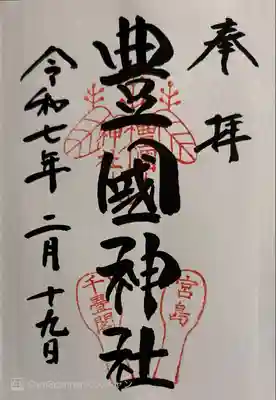 奉拝
豊國神社
豊國神社
宮島
千畳閣
令和七年 二月 十九日